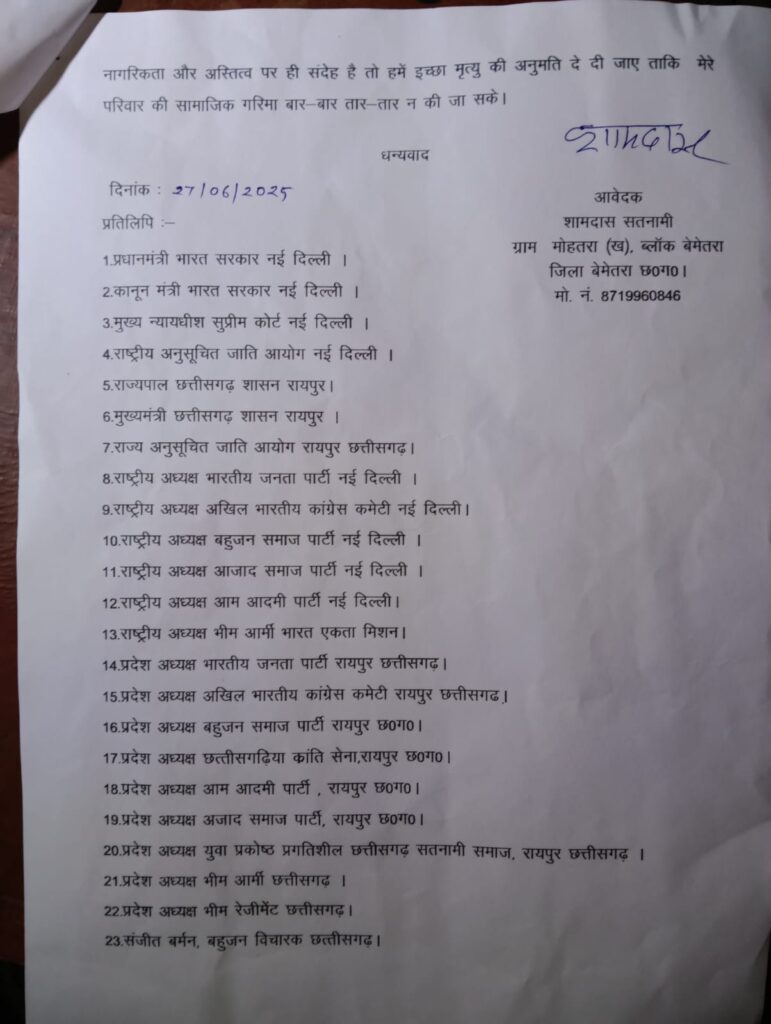 नागरिकता और अस्तित्व पर ही संदेह है तो हमें इच्छा मृत्यु की अनुमति दे दी जाए ताकि मेरे
परिवार की सामाजिक गरिमा बार–बार तार–तार न की जा सके।
धन्यवाद
शामदास
दिनांक : 27/06/2025
आवेदक
शामदास सतनामी
ग्राम मोहतरा (ख), ब्लॉक बेमेतरा
जिला बेमेतरा छ0ग0।
मो. नं. 8719960846
प्रतिलिपि :–
1.प्रधानमंत्री भारत सरकार नई दिल्ली ।
2.कानून मंत्री भारत सरकार नई दिल्ली ।
3.मुख्य न्यायधीश सुप्रीम कोर्ट नई दिल्ली ।
4.राष्ट्रीय अनुसूचित जाति आयोग नई दिल्ली ।
5.राज्यपाल छत्तीसगढ़ शासन रायपुर।
6.मुख्यमंत्री छत्तीसगढ़ शासन रायपुर ।
7.राज्य अनुसूचित जाति आयोग रायपुर छत्तीसगढ़।
8.राष्ट्रीय अध्यक्ष भारतीय जनता पार्टी नई दिल्ली ।
9.राष्ट्रीय अध्यक्ष अखिल भारतीय कांग्रेस कमेटी नई दिल्ली।
10.राष्ट्रीय अध्यक्ष बहुजन समाज पार्टी नई दिल्ली ।
11.राष्ट्रीय अध्यक्ष आजाद समाज पार्टी नई दिल्ली ।
12.राष्ट्रीय अध्यक्ष आम आदमी पार्टी नई दिल्ली।
13.राष्ट्रीय अध्यक्ष भीम आर्मी भारत एकता मिशन।
14.प्रदेश अध्यक्ष भारतीय जनता पार्टी रायपुर छत्तीसगढ़।
15.प्रदेश अध्यक्ष अखिल भारतीय कांग्रेस कमेटी रायपुर छत्तीसगढ.।
16.प्रदेश अध्यक्ष बहुजन समाज पार्टी रायपुर छ0ग0।
17.प्रदेश अध्यक्ष छत्तीसगढ़िया क्रांति सेना,रायपुर छ0ग0।
18.प्रदेश अध्यक्ष आम आदमी पार्टी , रायपुर छ0ग0।
19.प्रदेश अध्यक्ष अजाद समाज पार्टी, रायपुर छ0ग0।
20.प्रदेश अध्यक्ष युवा प्रकोष्ठ प्रगतिशील छत्तीसगढ़ सतनामी समाज, रायपुर छत्तीसगढ़ ।
21.प्रदेश अध्यक्ष भीम आर्मी छत्तीसगढ़ ।
22.प्रदेश अध्यक्ष भीम रेजीमेंट छत्तीसगढ़।
23.संजीत बर्मन, बहुजन विचारक छत्तीसगढ़।